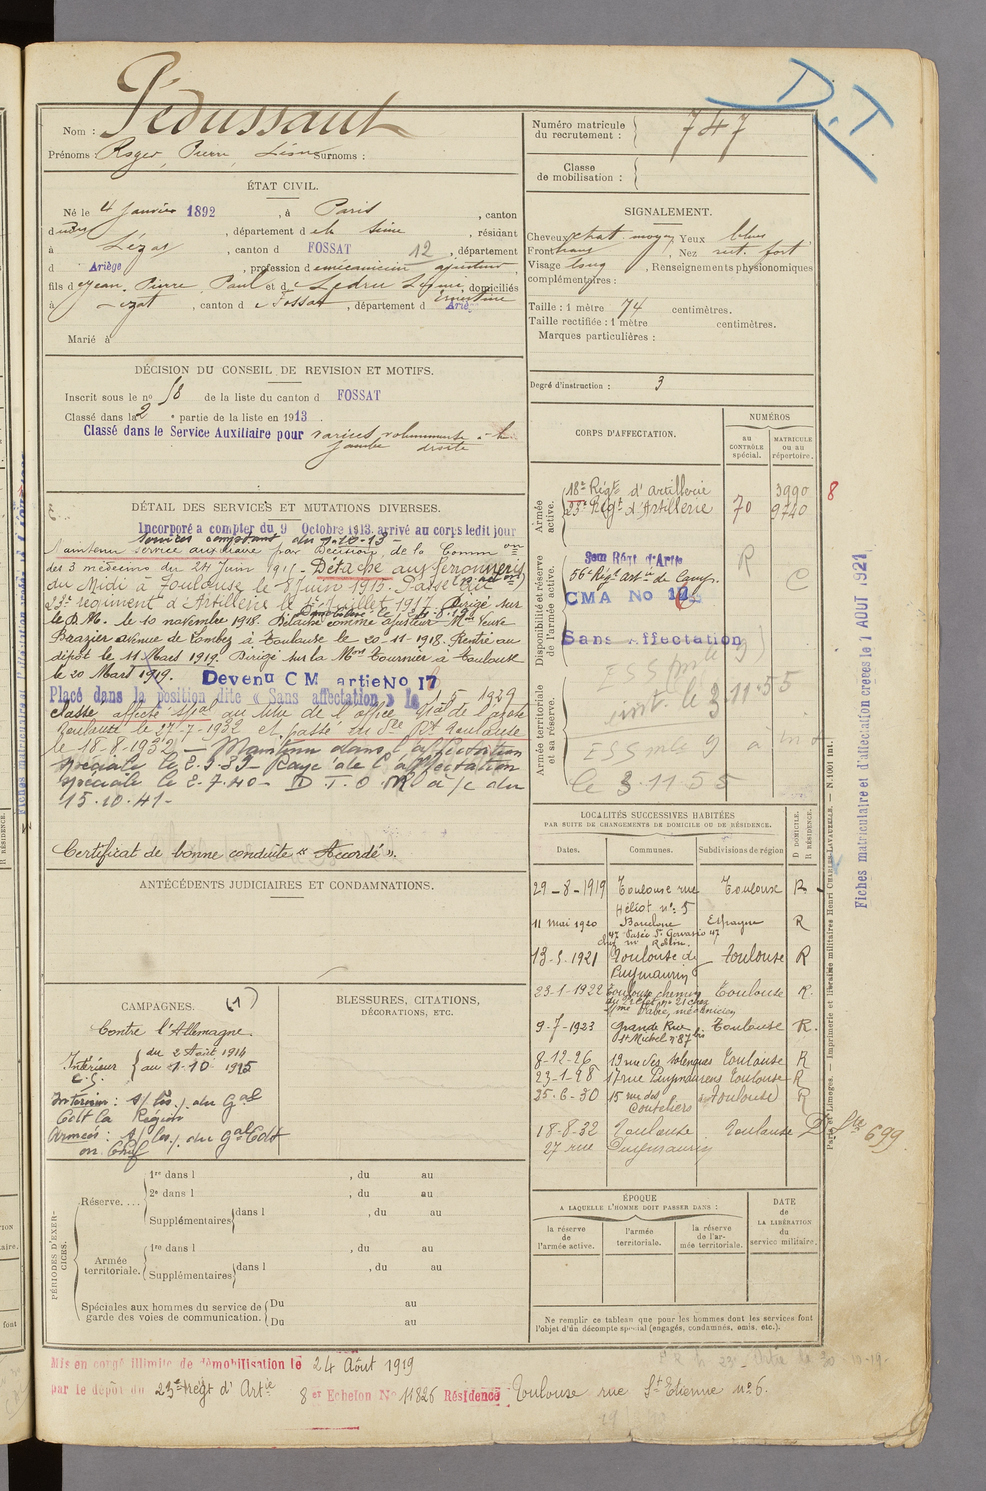 D.T
Nom : Pédussaut
Prénoms : Roger, Pierre, Surnoms :
Numéro matricule du recrutement : 747
Classe de mobilisation :
ÉTAT CIVIL.
Né le 4 Janvier 1892, à Paris, canton
d , département de la Seine, résidant
à Lézat, canton d FOSSAT 12, département
d Ariège, profession de mécanicien ajusteur,
fils de Jean, Pierre, Paul et de Ledru, domiciliés
à Lézat, canton de Fossat, département d Ariège
Marié à
SIGNALEMENT.
Cheveux chat. moyen, Yeux bleus
Front, Nez rect. fort
Visage long, Renseignements physionomiques
complémentaires :
Taille : 1 mètre 74 centimètres.
Taille rectifiée : 1 mètre centimètres.
Marques particulières :
Degré d'instruction : 3
DÉCISION DU CONSEIL DE REVISION ET MOTIFS.
Inscrit sous le no 58 de la liste du canton d FOSSAT
Classé dans la 2e partie de la liste en 1913.
Classé dans le Service Auxiliaire pour varices à la
jambe droite
DÉTAIL DES SERVICES ET MUTATIONS DIVERSES.
Incorporé à compter du 9 Octobre 1913, arrivé au corps ledit jour
Services comptant du 9-10-13
Maintenu service auxiliaire par Décision de la Common
des 3 médecins du 24 Juin 1915 - Détaché aux ferronnerie
du Midi à Toulouse le 8 Juin 1915. Passé au
23e régiment d'Artillerie le 1er Juillet 1917. Dirigé sur
le D.M. le 10 novembre 1918. Détaché comme ajusteur Mon Veuve
Brazier avenue de Lombez à Toulouse le 20-11-1918. Rentré au
dépôt le 11 Mars 1919. Dirigé sur la Mon Tournier à Toulouse
le 20 Mars 1919. Devenu CM artie No 17
Placé dans la position dite « Sans affectation » le 1-5-1929
Classé affecté spal au titre de l'office
Toulouse le 27-7-1932 et passé au Toulouse
le 18-8-1932 - Maintenu dans l'affectation
spéciale le 2.9.39 - Rayé de l'affectation
spéciale le 2-7-40 - D.T.O.M à /c du
15.10.41 -
Certificat de bonne conduite « Accordé ».
ANTÉCÉDENTS JUDICIAIRES ET CONDAMNATIONS.
CAMPAGNES. (1)
Contre l'Allemagne.
Intérieur du 2 Août 1914
C.S. au 1-10 1915
Intérieur : s/ les j. du Gal
Cdt la Région
Armées : s/ les j. du Gal Cdt
en Chef
BLESSURES, CITATIONS, DÉCORATIONS, ETC.
CORPS D'AFFECTATION.
NUMÉROS
au CONTRÔLE spécial.
MATRICULE OU au répertoire.
Armée active.
18e Régt d'artillerie 3990
23e Régt d'Artillerie 70 9740
8
Disponibilité et réserve de l'armée active.
56e Régt artie de Camp. R C
CMA No 17
Sans Affectation
Armée territoriale et sa réserve.
inst. le 3.11.55
le 3.11.55
LOCALITÉS SUCCESSIVES HABITÉES
PAR SUITE DE CHANGEMENTS DE DOMICILE OU DE RÉSIDENCE.
Dates. Communes. Subdivisions de région D DOMICILE. R RÉSIDENCE.
29-8-1919 Toulouse rue Héliot no 5 Toulouse R
11 mai 1920 Barcelone Espagne R
13-5-1921 Toulouse de Puymaurin Toulouse R
23-1-1922 Toulouse chemin Toulouse R.
9-7-1923 Grande Rue St Michel no 87 bis Toulouse R.
8-12-26 19 rue des Toulouse R
23-1-28 17 rue Puymaurens Toulouse R
25-6-30 15 rue des Couteliers Toulouse R
18-8-32 Toulouse Toulouse D
27 rue Puymaurin
699
ÉPOQUE
A LAQUELLE L'HOMME DOIT PASSER DANS :
la réserve de l'armée active.
l'armée territoriale.
la réserve de l'armée territoriale.
DATE de LA LIBÉRATION du service militaire.
Ne remplir ce tableau que pour les hommes dont les services font
l'objet d'un décompte spécial (engagés, condamnés, amis, etc.).
PÉRIODES D'EXERCICES.
Réserve....
1re dans l , du au
2e dans l , du au
Supplémentaires dans l , du au
Armée territoriale.
1re dans l , du au
Supplémentaires dans l , du au
Spéciales aux hommes du service de garde des voies de communication.
Du au
Du au
Mis en congé illimité de démobilisation le 24 Août 1919
par le dépôt du 23e Régt d'Artie 8er Echelon No 11826 Résidence Toulouse rue St Etienne no 6.
Fiches matriculaire et d'affectation créées le 1 AOUT 1921
Paris et Limoges. — Imprimerie et librairie militaires Henri CHARLES-LAVAUZELLE. — N. 1001 int.